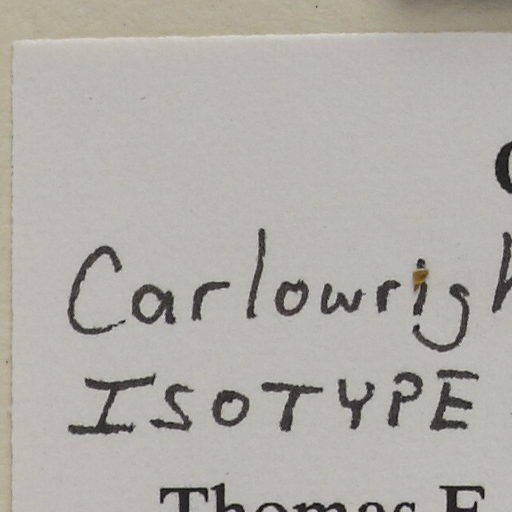 Carlowrigh
ISOTYPE
Thomas F.